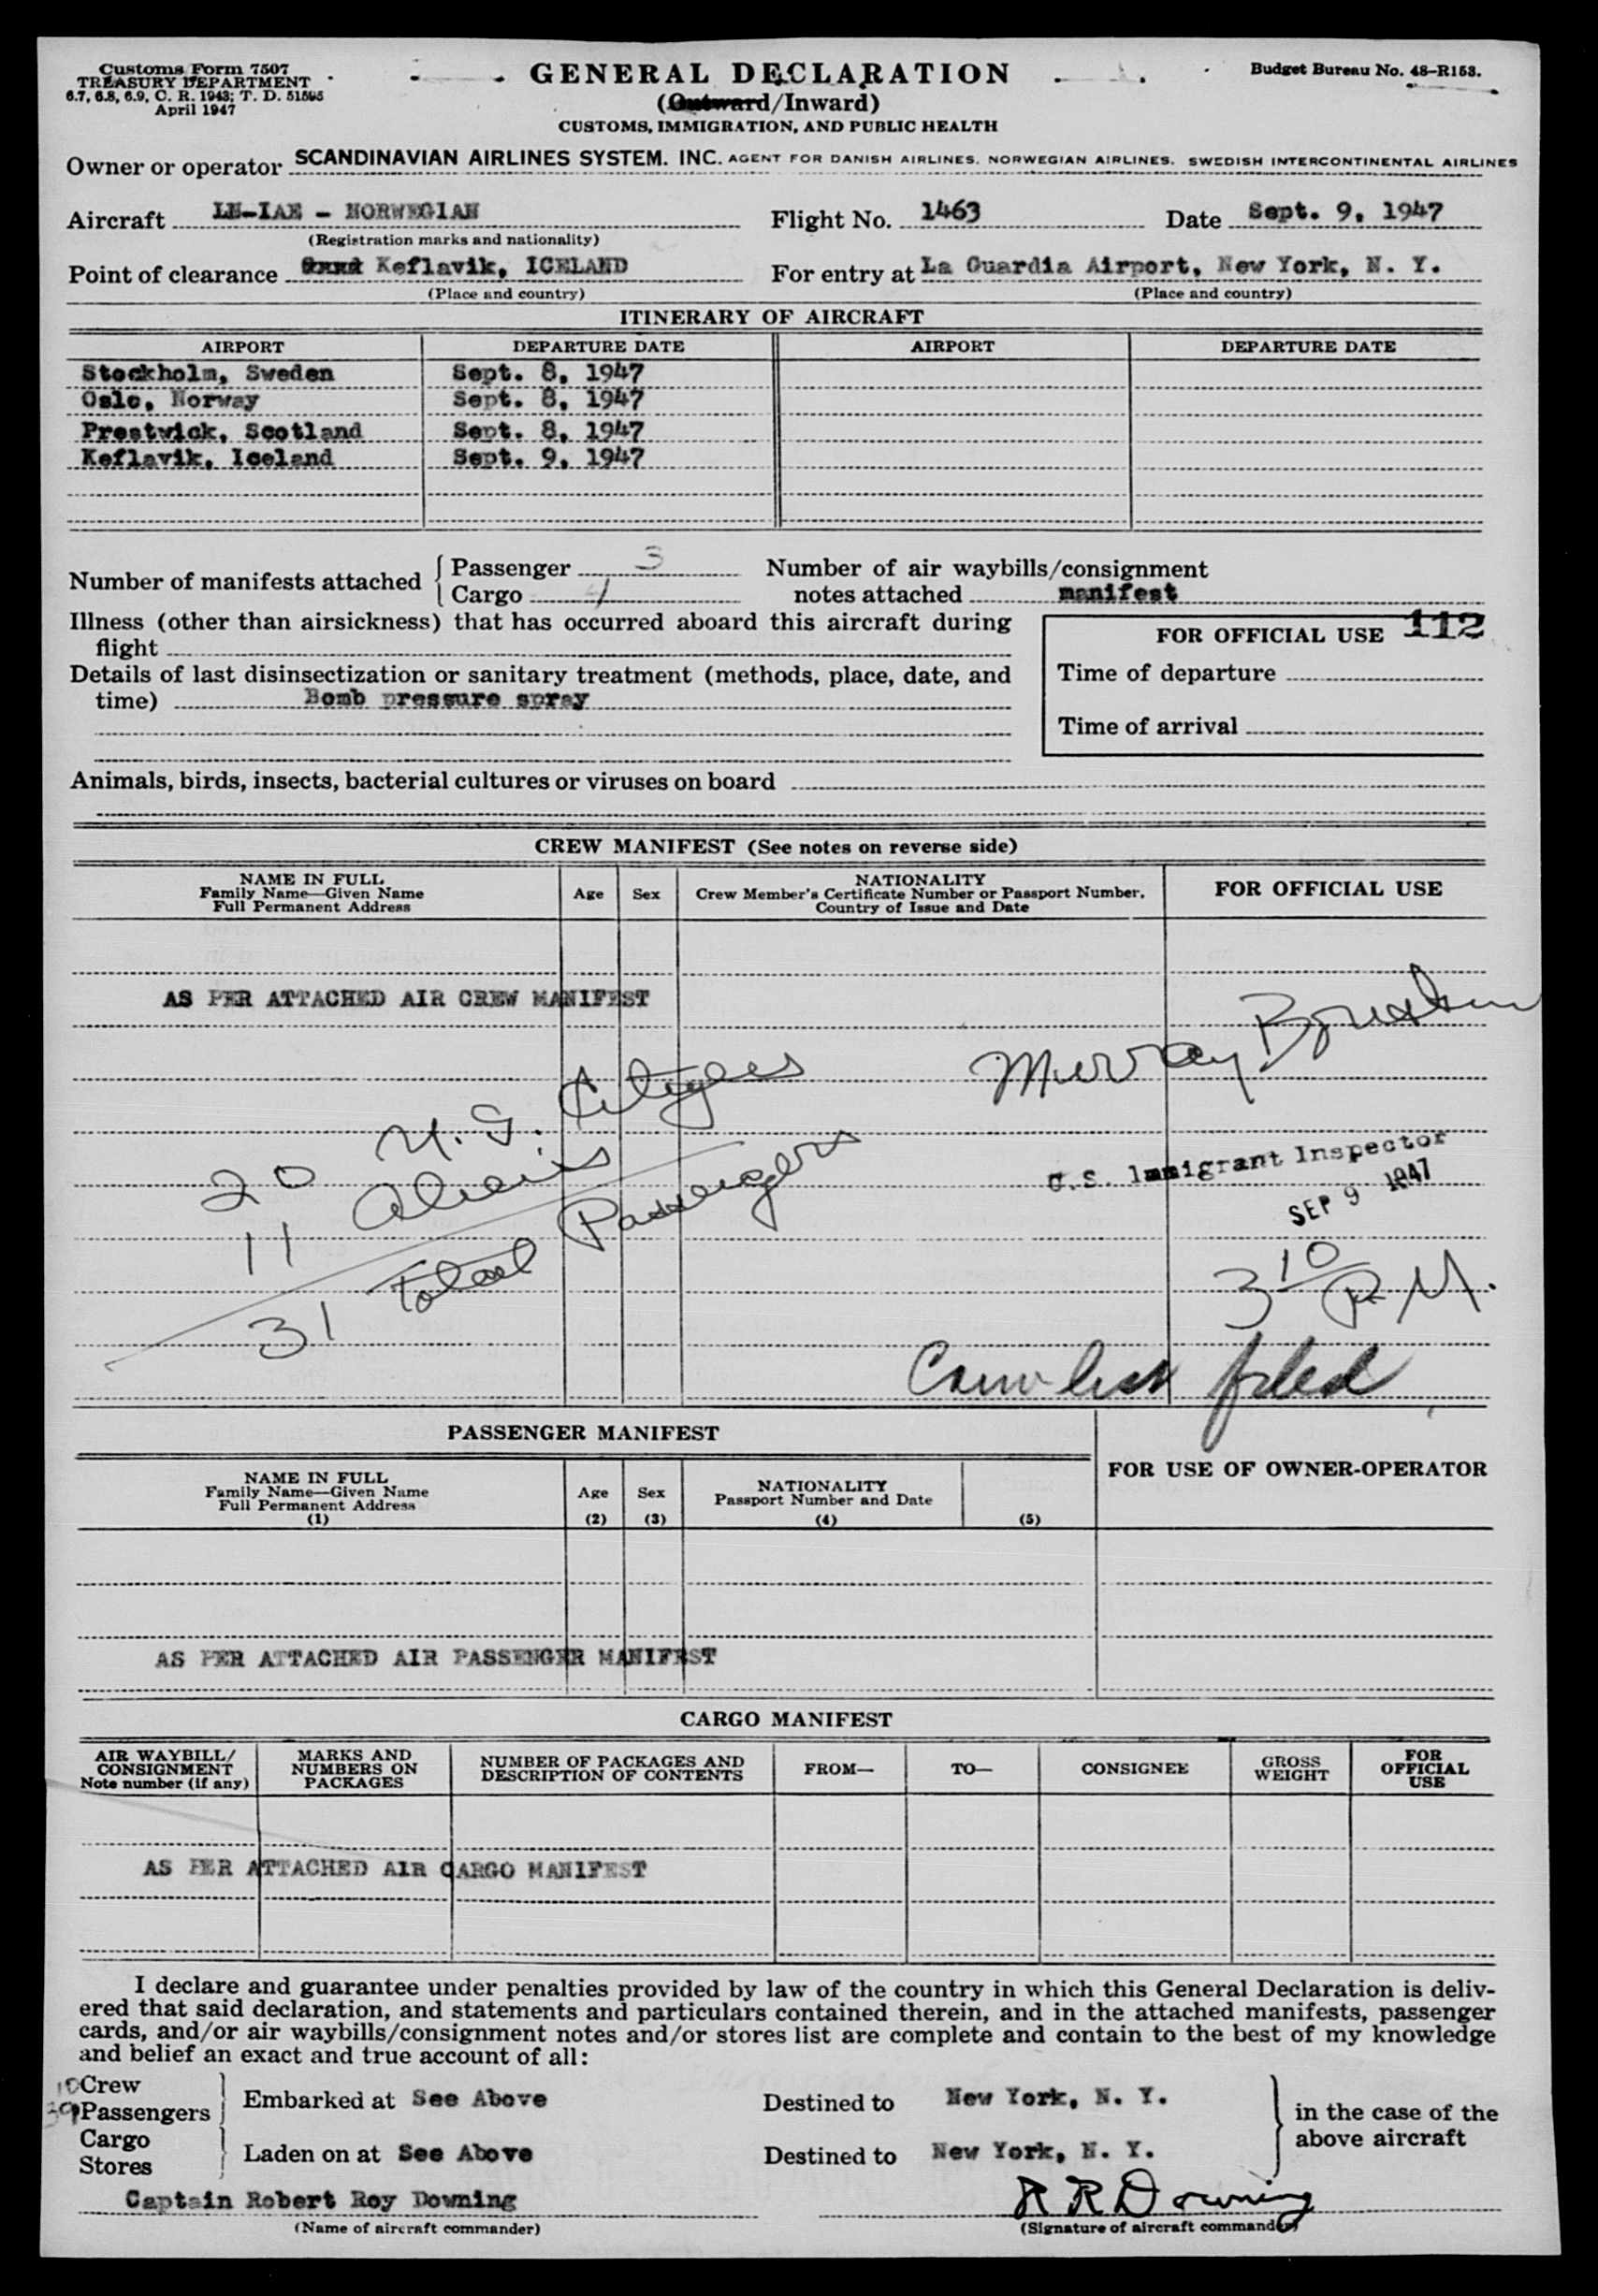 Customs Form 7507
TREASURY DEPARTMENT
6.7, 6.8, 6.9, C. R. 1943; T. D. 51595
April 1947
GENERAL DECLARATION
(Outward/Inward)
CUSTOMS, IMMIGRATION, AND PUBLIC HEALTH
Budget Bureau No. 48-R153.
Owner or operator SCANDINAVIAN AIRLINES SYSTEM. INC. AGENT FOR DANISH AIRLINES. NORWEGIAN AIRLINES. SWEDISH INTERCONTINENTAL AIRLINES
Aircraft LN-IAE - NORWEGIAN Flight No. 1463 Date Sept. 9, 1947
(Registration marks and nationality)
Point of clearance Keflavik, ICELAND For entry at La Guardia Airport, New York, N. Y.
(Place and country) (Place and country)
ITINERARY OF AIRCRAFT
AIRPORT DEPARTURE DATE AIRPORT DEPARTURE DATE
Stockholm, Sweden Sept. 8, 1947
Oslo, Norway Sept. 8, 1947
Prestwick, Scotland Sept. 8, 1947
Keflavik, Iceland Sept. 9, 1947
Number of manifests attached { Passenger 3 Number of air waybills/consignment
Cargo notes attached manifest
Illness (other than airsickness) that has occurred aboard this aircraft during
flight
FOR OFFICIAL USE 112
Details of last disinsectization or sanitary treatment (methods, place, date, and
time) Bomb pressure spray
Time of departure
Time of arrival
Animals, birds, insects, bacterial cultures or viruses on board
CREW MANIFEST (See notes on reverse side)
NAME IN FULL
Family Name—Given Name
Full Permanent Address
Age
Sex
NATIONALITY
Crew Member's Certificate Number or Passport Number,
Country of Issue and Date
FOR OFFICIAL USE
AS PER ATTACHED AIR CREW MANIFEST
Murray
20 U.S. Citizens
11 Aliens
31 Total Passengers
U.S. Immigrant Inspector
SEP 9 1947
3 10 P.M.
Crew list filed
PASSENGER MANIFEST
NAME IN FULL
Family Name—Given Name
Full Permanent Address
(1)
Age
(2)
Sex
(3)
NATIONALITY
Passport Number and Date
(4)
(5)
FOR USE OF OWNER-OPERATOR
AS PER ATTACHED AIR PASSENGER MANIFEST
CARGO MANIFEST
AIR WAYBILL/
CONSIGNMENT
Note number (if any)
MARKS AND
NUMBERS ON
PACKAGES
NUMBER OF PACKAGES AND
DESCRIPTION OF CONTENTS
FROM—
TO—
CONSIGNEE
GROSS
WEIGHT
FOR
OFFICIAL
USE
AS PER ATTACHED AIR CARGO MANIFEST
I declare and guarantee under penalties provided by law of the country in which this General Declaration is deliv-
ered that said declaration, and statements and particulars contained therein, and in the attached manifests, passenger
cards, and/or air waybills/consignment notes and/or stores list are complete and contain to the best of my knowledge
and belief an exact and true account of all:
10 Crew
39 Passengers
Embarked at See Above Destined to New York, N. Y.
Cargo
Stores
Laden on at See Above Destined to New York, N. Y.
in the case of the
above aircraft
Captain Robert Roy Downing R R Downing
(Name of aircraft commander) (Signature of aircraft commander)